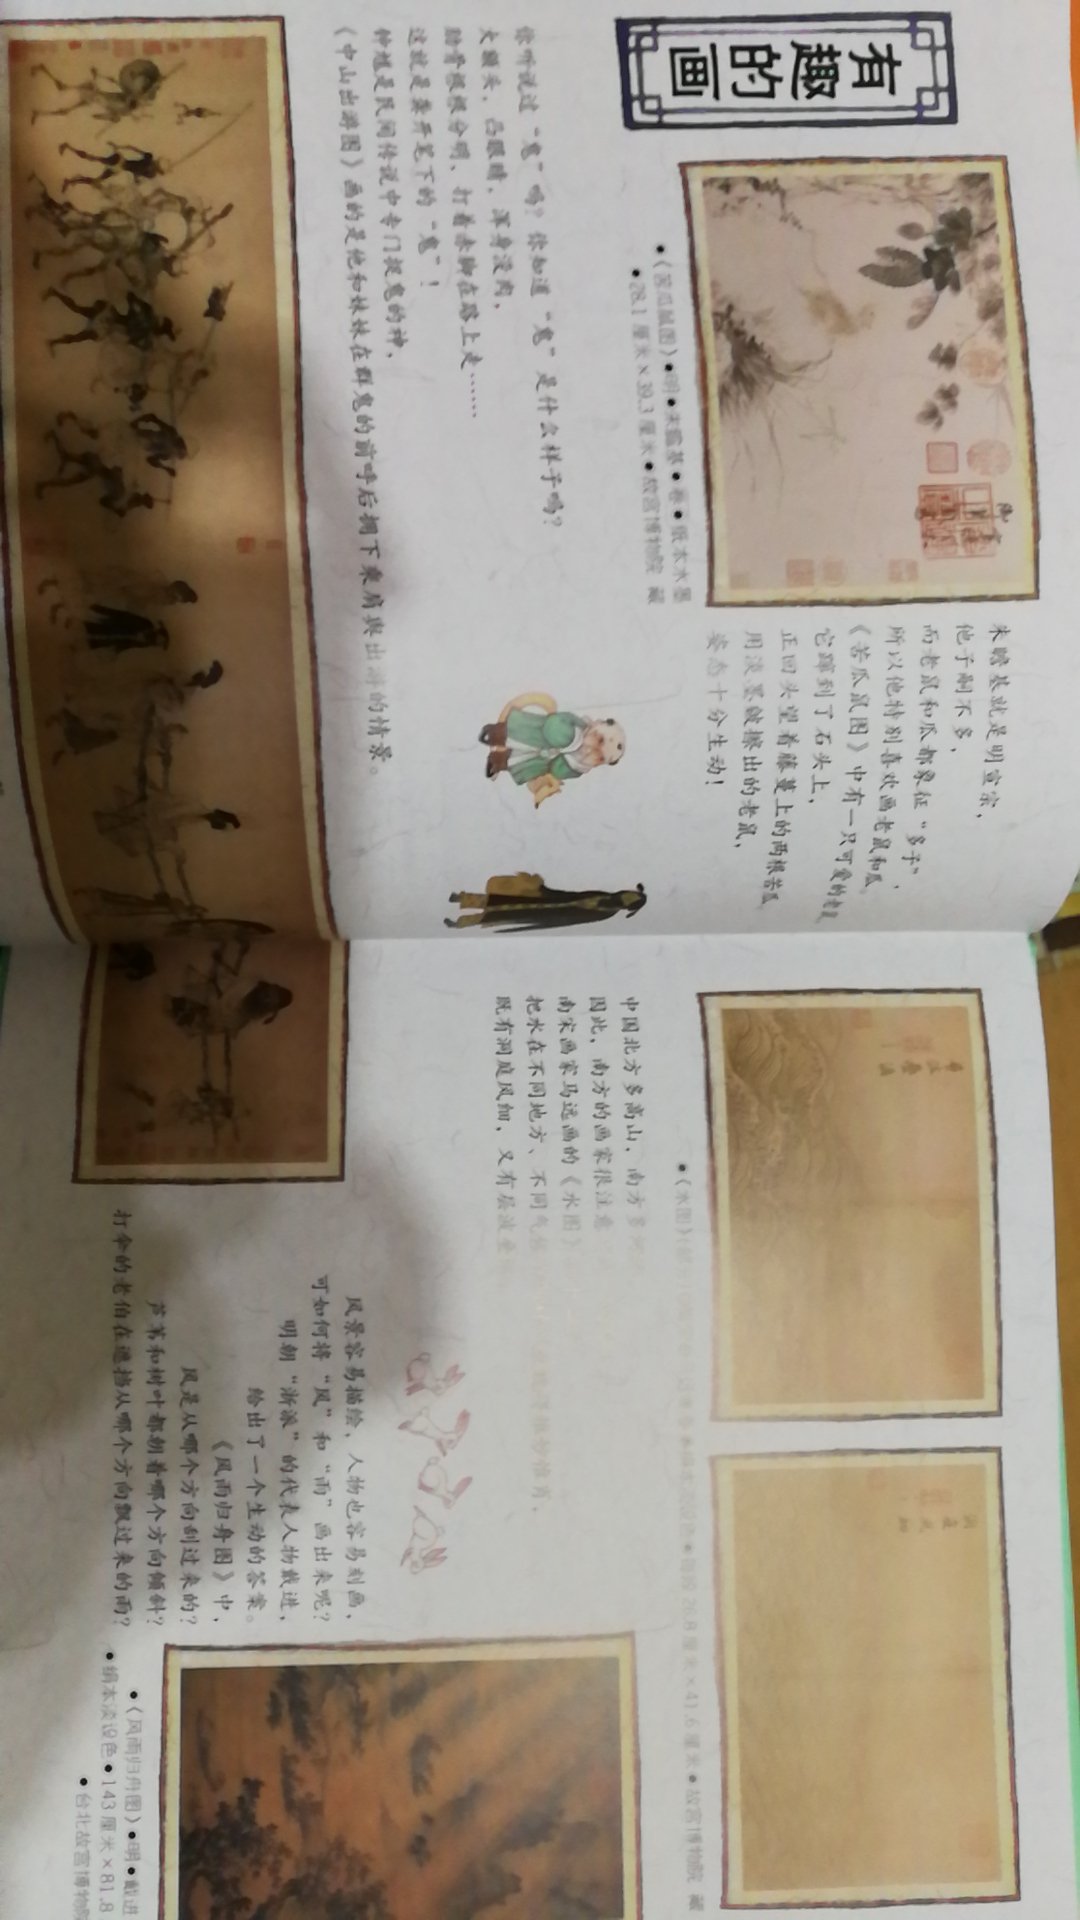 有趣的画
●《苦瓜鼠图》●明●朱瞻基●卷●纸本水墨
●28.1厘米×39.3厘米●故宫博物院 藏
朱瞻基就是明宣宗，
他子嗣不多，
而老鼠和瓜都象征“多子”，
所以他特别喜欢画老鼠和瓜。
《苦瓜鼠图》中有一只可爱的老鼠，
它蹿到了石头上，
正回头望着藤蔓上的两根苦瓜，
用淡墨皴擦出的老鼠，
姿态十分生动！
你听说过“鬼”吗？你知道“鬼”是什么样子吗？
大额头，凸眼睛，浑身没肉，
肋骨根根分明，打着赤脚在路上走……
这就是龚开笔下的“鬼”！
钟馗是民间传说中专门捉鬼的神，
《中山出游图》画的是他和妹妹在群鬼的前呼后拥下乘肩舆出游的情景。
●《水图》
26.8厘米×41.6厘米●故宫博物院 藏
中国北方多高山，南方多
因此，南方的画家很注意
南宋画家马远画的《水图》
把水在不同地方、不同气
既有洞庭风细，又有层波
风景容易描绘，人物也容易刻画，
可如何将“风”和“雨”画出来呢？
明朝“浙派”的代表人物戴进，
给出了一个生动的答案。
《风雨归舟图》中，
风是从哪个方向刮过来的？
芦苇和树叶都朝着哪个方向倾斜？
打伞的老伯在遮挡从哪个方向飘过来的雨？
●《风雨归舟图》●明●戴进
●绢本淡设色●143厘米×81.8
●台北故宫博物院